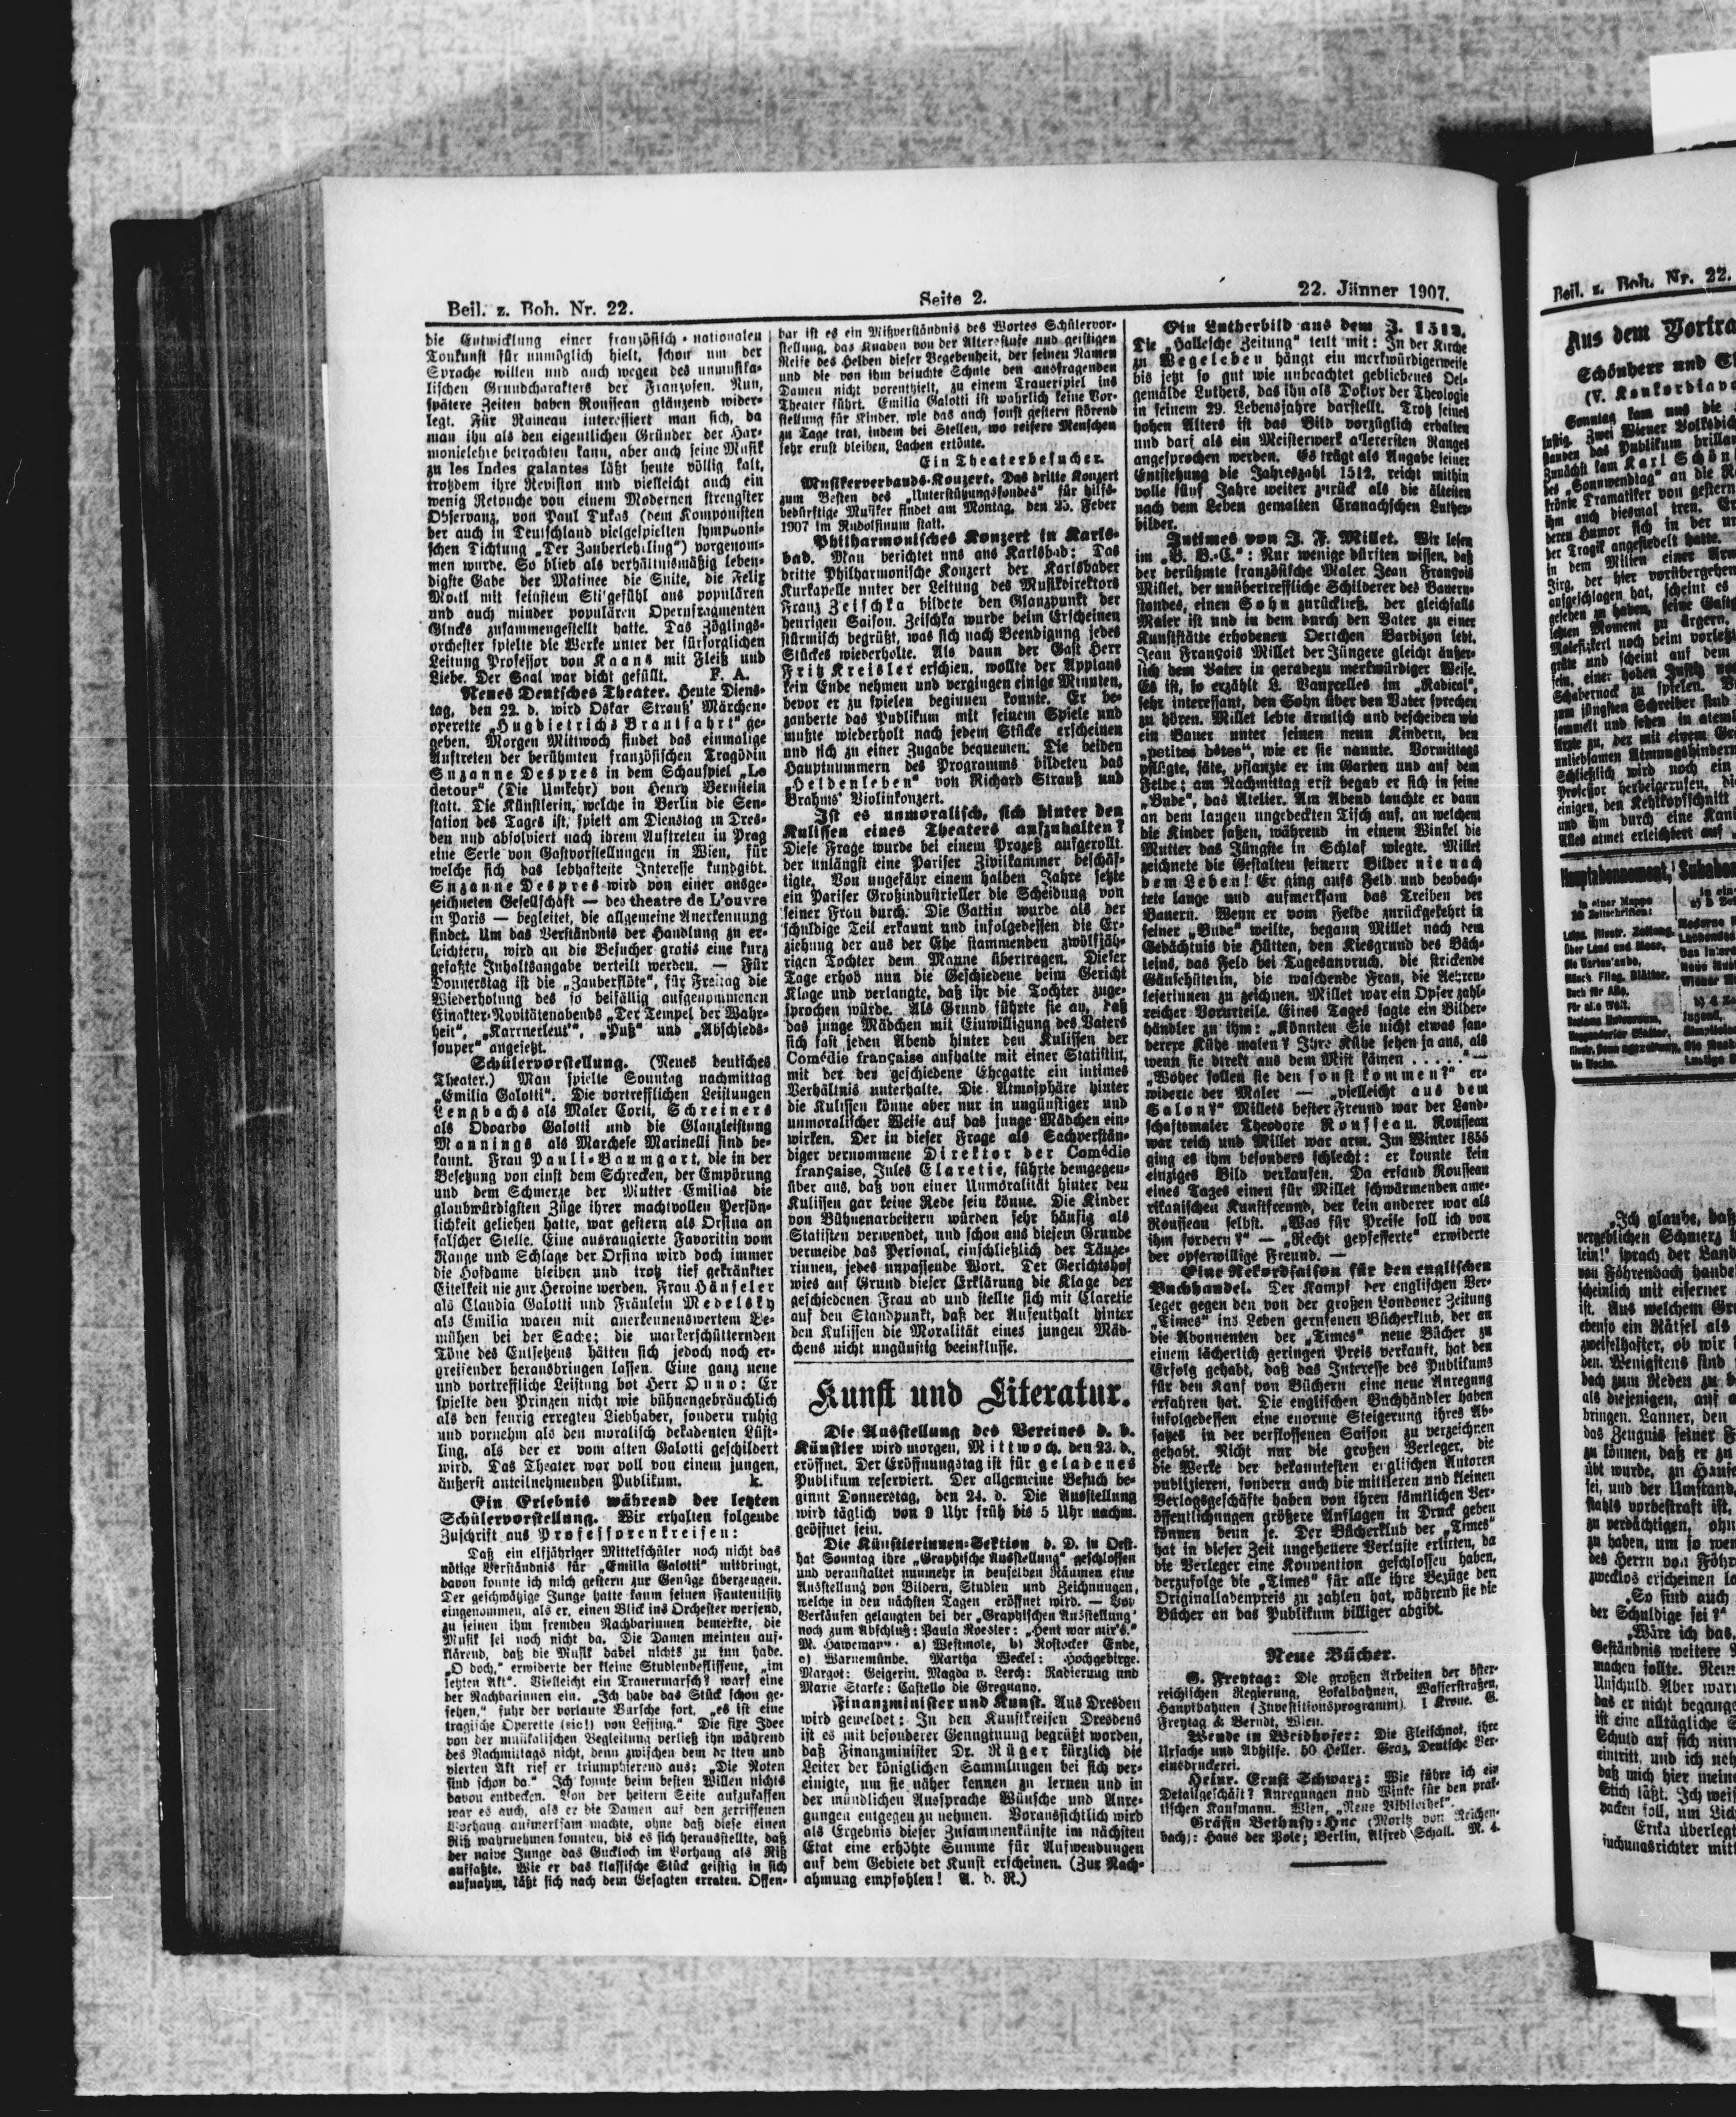 Beil. z. Boh. Nr. 22.
Seite 2.
22. Jänner 1907.
die Entwicklung einer französisch-nationalen
Tonkunst für unmöglich hielt, schon um der
Sprache willen und auch wegen des unmusika-
lischen Grundcharakters der Franzosen. Nun,
spätere Zeiten haben Rousseau glänzend wider-
legt. Für Rameau interessiert man sich, da
man ihn als den eigentlichen Gründer der Har-
monielehre betrachten kann, aber auch seine Musik
zu les Indes galantes läßt heute völlig kalt,
trotzdem ihre Revision und vielleicht auch ein
wenig Retouche von einem Modernen strengster
Observanz, von Paul Dukas (dem Komponisten
der auch in Deutschland vielgespielten symphoni-
schen Dichtung „Der Zauberlehrling“) vorgenom-
men wurde. So blieb als verhältnismäßig leben-
digste Gabe der Matinee die Suite, die Felix
Mottl mit feinstem Stilgefühl aus populären
und auch minder populären Opernfragmenten
Glucks zusammengestellt hatte. Das Zöglings-
orchester spielte die Werke unter der fürsorglichen
Leitung Professor von Kaans mit Fleiß und
Liebe. Der Saal war dicht gefüllt. F. A.
Neues Deutsches Theater. Heute Diens-
tag, den 22. d. wird Oskar Strauß' Märchen-
operette „Hugdietrichs Brautfahrt“ ge-
geben. Morgen Mittwoch findet das einmalige
Auftreten der berühmten französischen Tragödin
Suzanne Despres in dem Schauspiel „Le
detour“ (Die Umkehr) von Henry Bernstein
statt. Die Künstlerin, welche in Berlin die Sen-
sation des Tages ist, spielt am Dienstag in Dres-
den und absolviert nach ihrem Auftreten in Prag
eine Serie von Gastvorstellungen in Wien, für
welche sich das lebhafteste Interesse kundgibt.
Suzanne Despres wird von einer ausge-
zeichneten Gesellschaft — des theatre de L'ouvre
in Paris — begleitet, die allgemeine Anerkennung
findet. Um das Verständnis der Handlung zu er-
leichtern, wird an die Besucher gratis eine kurz
gefaßte Inhaltsangabe verteilt werden. — Für
Donnerstag ist die „Zauberflöte“, für Freitag die
Wiederholung des so beifällig aufgenommenen
Einakter-Novitätenabends „Der Tempel der Wahr-
heit“, „Karrnerleut'“, „Putz“ und „Abschieds-
souper“ angesetzt.
Schülervorstellung. (Neues deutsches
Theater.) Man spielte Sonntag nachmittag
„Emilia Galotti“. Die vortrefflichen Leistungen
Lengbachs als Maler Corti, Schreiners
als Odoardo Galotti und die Glanzleistung
Mannings als Marchese Marinelli sind be-
kannt. Frau Pauli-Baumgart, die in der
Besetzung von einst dem Schrecken, der Empörung
und dem Schmerze der Mutter Emilias die
glaubwürdigsten Züge ihrer machtvollen Persön-
lichkeit geliehen hatte, war gestern als Orsina an
falscher Stelle. Eine ausrangierte Favoritin vom
Range und Schlage der Orsina wird doch immer
die Hofdame bleiben und trotz tief gekränkter
Eitelkeit nie zur Heroine werden. Frau Häuseler
als Claudia Galotti und Fräulein Medelsky
als Emilia waren mit anerkennenswertem Be-
mühen bei der Sache; die markerschütternden
Töne des Entsetzens hätten sich jedoch noch er-
greifender herausbringen lassen. Eine ganz neue
und vortreffliche Leistung bot Herr Onno: Er
spielte den Prinzen nicht wie bühnengebräuchlich
als den feurig erregten Liebhaber, sondern ruhig
und vornehm als den moralisch dekadenten Lüst-
ling, als der er vom alten Galotti geschildert
wird. Das Theater war voll von einem jungen,
äußerst anteilnehmenden Publikum. k.
Ein Erlebnis während der letzten
Schülervorstellung. Wir erhalten folgende
Zuschrift aus Professorenkreisen:
Daß ein elfjähriger Mittelschüler noch nicht das
nötige Verständnis für „Emilia Galotti“ mitbringt,
davon konnte ich mich gestern zur Genüge überzeugen.
Der geschwätzige Junge hatte kaum seinen Fauteuilsitz
eingenommen, als er, einen Blick ins Orchester werfend,
zu seinen ihm fremden Nachbarinnen bemerkte, die
Musik sei noch nicht da. Die Damen meinten auf-
klärend, daß die Musik dabei nichts zu tun habe.
„O doch,“ erwiderte der kleine Studienbeflissene, „im
letzten Akt“. Vielleicht ein Trauermarsch? warf eine
der Nachbarinnen ein. „Ich habe das Stück schon ge-
sehen,“ fuhr der vorlaute Bursche fort, „es ist eine
tragische Operette (sic!) von Lessing.“ Die fixe Idee
von der musikalischen Begleitung verließ ihn während
des Nachmittags nicht, denn zwischen dem dritten und
vierten Akt rief er triumphierend aus: „Die Noten
sind schon da.“ Ich konnte beim besten Willen nichts
davon entdecken. Von der heitern Seite aufzufassen
war es auch, als er die Damen auf den zerrissenen
Vorhang aufmerksam machte, ohne daß diese einen
Riß wahrnehmen konnten, bis es sich herausstellte, daß
der naive Junge das Guckloch im Vorhang als Riß
auffaßte. Wie er das klassische Stück geistig in sich
aufnahm, läßt sich nach dem Gesagten erraten. Offen-
bar ist es ein Mißverständnis des Wortes Schülervor-
stellung, das Knaben von der Altersstufe und geistigen
Reife des Helden dieser Begebenheit, der seinen Namen
und die von ihm besuchte Schule den ausfragenden
Damen nicht vorenthielt, zu einem Trauerspiel ins
Theater führt. Emilia Galotti ist wahrlich keine Vor-
stellung für Kinder, wie das auch sonst gestern störend
zu Tage trat, indem bei Stellen, wo reifere Menschen
sehr ernst bleiben, Lachen ertönte.
Ein Theaterbesucher.
Musikerverbands-Konzert. Das dritte Konzert
zum Besten des „Unterstützungsfondes“ für hilfs-
bedürftige Musiker findet am Montag, den 25. Feber
1907 im Rudolfinum statt.
Philharmonisches Konzert in Karls-
bad. Man berichtet uns aus Karlsbad: Das
dritte Philharmonische Konzert der Karlsbader
Kurkapelle unter der Leitung des Musikdirektors
Franz Zeischka bildete den Glanzpunkt der
heurigen Saison. Zeischka wurde beim Erscheinen
stürmisch begrüßt, was sich nach Beendigung jedes
Stückes wiederholte. Als dann der Gast Herr
Fritz Kreisler erschien, wollte der Applaus
kein Ende nehmen und vergingen einige Minuten,
bevor er zu spielen beginnen konnte. Er be-
zauberte das Publikum mit seinem Spiele und
mußte wiederholt nach jedem Stücke erscheinen
und sich zu einer Zugabe bequemen. Die beiden
Hauptnummern des Programms bildeten das
„Heldenleben“ von Richard Strauß und
Brahms' Violinkonzert.
Ist es unmoralisch, sich hinter den
Kulissen eines Theaters aufzuhalten?
Diese Frage wurde bei einem Prozeß aufgerollt.
der unlängst eine Pariser Zivilkammer beschäf-
tigte. Von ungefähr einem halben Jahre setzte
ein Pariser Großindustrieller die Scheidung von
seiner Frau durch. Die Gattin wurde als der
schuldige Teil erkannt und infolgedessen die Er-
ziehung der aus der Ehe stammenden zwölfjäh-
rigen Tochter dem Manne übertragen. Dieser
Tage erhob nun die Geschiedene beim Gericht
Klage und verlangte, daß ihr die Tochter zuge-
sprochen würde. Als Grund führte sie an, daß
das junge Mädchen mit Einwilligung des Vaters
sich fast jeden Abend hinter den Kulissen der
Comédie française aufhalte mit einer Statistin,
mit der der geschiedene Ehegatte ein intimes
Verhältnis unterhalte. Die Atmosphäre hinter
die Kulissen könne aber nur in ungünstiger und
unmoralischer Weise auf das junge Mädchen ein-
wirken. Der in dieser Frage als Sachverstän-
diger vernommene Direktor der Comédie
française, Jules Claretie, führte demgegen-
über aus, daß von einer Unmoralität hinter den
Kulissen gar keine Rede sein könne. Die Kinder
von Bühnenarbeitern würden sehr häufig als
Statisten verwendet, und schon aus diesem Grunde
vermeide das Personal, einschließlich der Tänze-
rinnen, jedes unpassende Wort. Der Gerichtshof
wies auf Grund dieser Erklärung die Klage der
geschiedenen Frau ab und stellte sich mit Claretie
auf den Standpunkt, daß der Aufenthalt hinter
den Kulissen die Moralität eines jungen Mäd-
chens nicht ungünstig beeinflusse.
Kunst und Literatur.
Die Ausstellung des Vereines d. b.
Künstler wird morgen, Mittwoch, den 23. d.,
eröffnet. Der Eröffnungstag ist für geladenes
Publikum reserviert. Der allgemeine Besuch be-
ginnt Donnerstag, den 24. d. Die Ausstellung
wird täglich von 9 Uhr früh bis 5 Uhr nachm.
geöffnet sein.
Die Künstlerinnen-Sektion d. D. in Oest.
hat Sonntag ihre „Graphische Ausstellung“ geschlossen
und veranstaltet nunmehr in denselben Räumen eine
Ausstellung von Bildern, Studien und Zeichnungen,
welche in den nächsten Tagen eröffnet wird. — Von
Verkäufen gelangten bei der „Graphischen Ausstellung“
noch zum Abschluß: Paula Roesler: „Heut war mir's.“
M. Hawemann: a) Westmole, b) Rostocker Ende,
c) Warnemünde. Martha Weckel: Hochgebirge.
Margot: Geigerin. Magda v. Lerch: Radierung und
Marie Starke: Castello die Greguano.
Finanzminister und Kunst. Aus Dresden
wird gemeldet: In den Kunstkreisen Dresdens
ist es mit besonderer Genugtuung begrüßt worden,
daß Finanzminister Dr. Rüger kürzlich die
Leiter der königlichen Sammlungen bei sich ver-
einigte, um sie näher kennen zu lernen und in
der mündlichen Aussprache Wünsche und Anre-
gungen entgegen zu nehmen. Voraussichtlich wird
als Ergebnis dieser Zusammenkünfte im nächsten
Etat eine erhöhte Summe für Aufwendungen
auf dem Gebiete det Kunst erscheinen. (Zur Nach-
ahmung empfohlen! A. d. R.)
Ein Lutherbild aus dem J. 1512.
Die „Hallesche Zeitung“ teilt mit: In der Kirche
zu Wegeleben hängt ein merkwürdigerweise
bis jetzt so gut wie unbeachtet gebliebenes Oel-
gemälde Luthers, das ihn als Doktor der Theologie
in seinem 29. Lebensjahre darstellt. Trotz seines
hohen Alters ist das Bild vorzüglich erhalten
und darf als ein Meisterwerk allerersten Ranges
angesprochen werden. Es trägt als Angabe seiner
Entstehung die Jahreszahl 1512, reicht mithin
volle fünf Jahre weiter zurück als die ältesten
nach dem Leben gemalten Cranachschen Luther-
bilder.
Intimes von J. F. Millet. Wir lesen
im „B. B.-C.“: Nur wenige dürften wissen, daß
der berühmte französische Maler Jean François
Millet, der unübertreffliche Schilderer des Bauern-
standes, einen Sohn zurückließ, der gleichfalls
Maler ist und in dem durch den Vater zu einer
Kunststätte erhobenen Oertchen Barbizon lebt.
Jean François Millet der Jüngere gleicht äußer-
lich dem Vater in geradezu merkwürdiger Weise.
Es ist, so erzählt L. Vauxcelles im „Radical“,
sehr interessant, den Sohn über den Vater sprechen
zu hören. Millet lebte ärmlich und bescheiden wie
ein Bauer unter seinen neun Kindern, den
„petites bêtes“, wie er sie nannte. Vormittags
pflügte, säte, pflanzte er im Garten und auf dem
Felde; am Nachmittag erst begab er sich in seine
„Bude“, das Atelier. Am Abend tauchte er dann
an dem langen ungedeckten Tisch auf, an welchem
die Kinder saßen, während in einem Winkel die
Mutter das Jüngste in Schlaf wiegte. Millet
zeichnete die Gestalten seinerr Bilder nie nach
dem Leben! Er ging aufs Feld und beobach-
tete lange und aufmerksam das Treiben der
Bauern. Wenn er vom Felde zurückgekehrt in
seiner „Bude“ weilte, begann Millet nach dem
Gedächtnis die Hütten, den Kiesgrund des Bäch-
leins, das Feld bei Tagesanbruch, die strickende
Gänsehüterin, die waschende Frau, die Aehren-
leserinnen zu zeichnen. Millet war ein Opfer zahl-
reicher Vorurteile. Eines Tages sagte ein Bilder-
händler zu ihm: „Könnten Sie nicht etwas sau-
berere Kühe malen? Ihre Kühe sehen ja aus, als
wenn sie direkt aus dem Mist kämen . . . . .“ —
„Woher sollen sie den sonst kommen?“ er-
widerte der Maler — „vielleicht aus dem
Salon?“ Millets bester Freund war der Land-
schaftsmaler Theodore Rousseau. Rousseau
war reich und Millet war arm. Im Winter 1855
ging es ihm besonders schlecht: er konnte kein
einziges Bild verkaufen. Da erfand Rousseau
eines Tages einen für Millet schwärmenden ame-
rikanischen Kunstfreund, der kein anderer war als
Rousseau selbst. „Was für Preise soll ich von
ihm fordern?“ — „Recht gepfefferte“ erwiderte
der opferwillige Freund. —
Eine Rekordsaison für den englischen
Buchhandel. Der Kampf der englischen Ver-
leger gegen den von der großen Londoner Zeitung
„Times“ ins Leben gerufenen Bücherklub, der an
die Abonnenten der „Times“ neue Bücher zu
einem lächerlich geringen Preis verkauft, hat den
Erfolg gehabt, daß das Interesse des Publikums
für den Kauf von Büchern eine neue Anregung
erfahren hat. Die englischen Buchhändler haben
infolgedessen eine enorme Steigerung ihres Ab-
satzes in der verflossenen Saison zu verzeichnen
gehabt. Nicht nur die großen Verleger, die
die Werke der bekanntesten englischen Autoren
publizieren, sondern auch die mittleren und kleinen
Verlagsgeschäfte haben von ihren sämtlichen Ver-
öffentlichungen größere Auflagen in Druck geben
können denn je. Der Bücherklub der „Times“
hat in dieser Zeit ungeheuere Verluste erlitten, da
die Verleger eine Konvention geschlossen haben,
derzufolge die „Times“ für alle ihre Bezüge den
Originalladenpreis zu zahlen hat, während sie die
Bücher an das Publikum billiger abgibt.
Neue Bücher.
G. Freytag: Die großen Arbeiten der öster-
reichischen Regierung, Lokalbahnen, Wasserstraßen,
Hauptbahnen (Investitionsprogramm). 1 Krone. G.
Freytag & Berndt, Wien.
Wende in Weidhofer: Die Fleischnot, ihre
Ursache und Abhilfe. 50 Heller. Graz, Deutsche Ver-
einsdruckerei.
Heinr. Ernst Schwarz: Wie führe ich ein
Detailgeschäft? Anregungen und Winke für den prak-
tischen Kaufmann. Wien, „Neue Bibliothek“.
Gräfin Bethusy-Huc (Moritz von Reichen-
bach): Haus der Pole; Berlin, Alfred Schall. M. 4.
Beil. z. Boh. Nr. 22.
Aus dem Vortra
Schönherr und
(V. Konkordia
Sonntag kam uns die
lustig. Zwei Wiener Volksdich
standen das Publikum brilla
Zunächst kam Karl Schön
des „Sonnwendtag“ an die
ihm auch diesmal treu.
deren Humor sich in der
der Tragik angesiedelt hatte.
in dem Milieu einer
Zirg, der hier vorübergehen
aufgeschlagen hat, scheint es
gesehen zu haben, seine
letzten Moment zu ärgern.
noch beim
und scheint auf dem
sein, einer hohen
Schabernack zu spielen.
zum jüngsten Schreiber sind
sammelt und sehen in
Ärzte zu, der mit einem
unliebsamen Atmungshindern
Schließlich wird noch ein
Professor herbeigerufen,
einigen, den Kehlkopfschnitt
und ihm durch eine
Alles atmet erleichtert auf
Hauptabonnement,
in einer Mappe
20 Zeitschriften:
Über Land und Meer,
Buch für Alle,
Für alle Welt,
Die Woche.
Jugend,
„Ich glaube, daß
vergeblichen Schmerz
lein!“ sprach der Land
von Föhrenbach
scheinlich mit eiserner
ist. Aus welchem Gr
ebenso ein Rätsel als
zweifelhafter, ob wir
den. Wenigstens sind
bach zum Reden zu
als diejenigen, auf
bringen. Lanner, den
das Zeugnis seiner
zu können, daß er zu
übt wurde, zu Hause
sei, und der Umstand,
stahls vorbestraft ist,
zu verdächtigen, ohn
zu haben, um so wen
des Herrn von Föhr
zwecklos erscheinen
„So sind auch
der Schuldige sei?“
„Wäre ich das,
Geständnis weitere
machen sollte. Nein
Unschuld. Aber war
das er nicht begange
ist eine alltägliche
Schuld auf sich nim
eintritt, und ich neh
daß mich hier mein
Stich läßt. Ich weiß
packen soll, um
Erika überlegt
suchungsrichter mitt